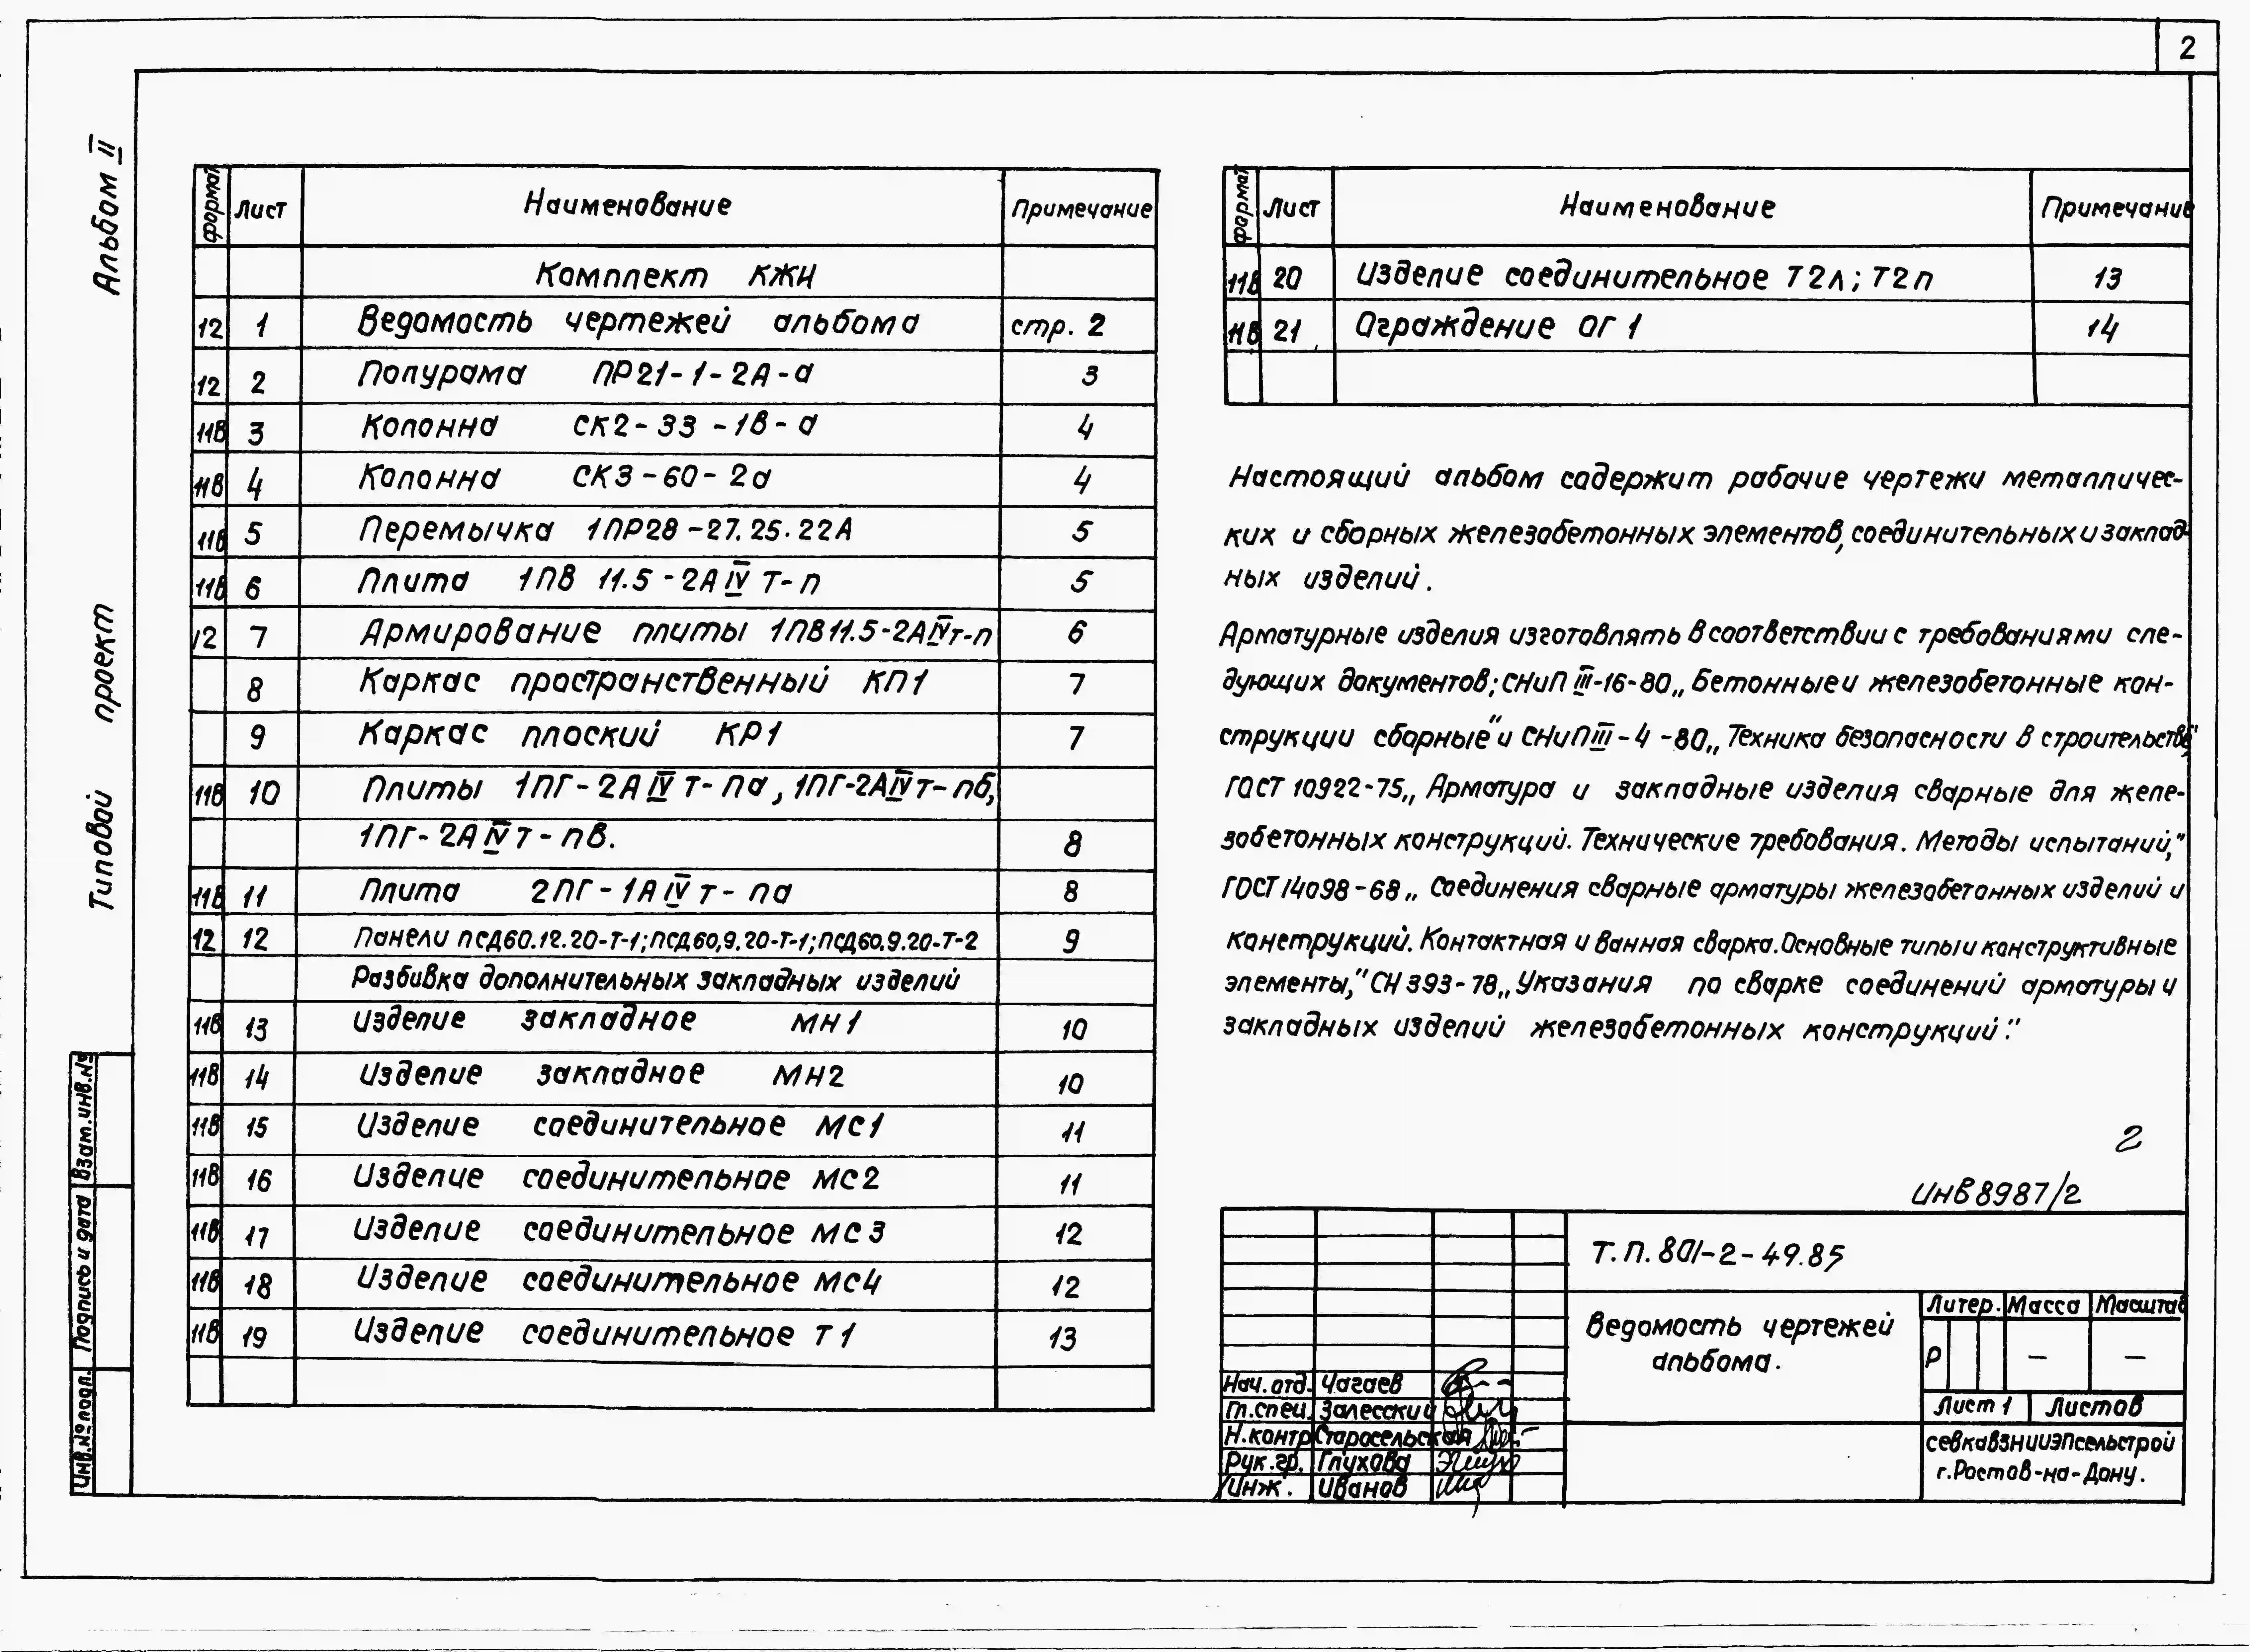 2
Альбом II
Типовой проект
Взам.инв.№
Подпись и дата
Инв.№ подл.
формат Лист Наименование Примечание
Комплект КЖИ
12 1 Ведомость чертежей альбома стр. 2
12 2 Полурама ПР21-1-2А-а 3
11В 3 Колонна СК2-33-1в-а 4
11В 4 Колонна СК3-60-2а 4
11В 5 Перемычка 1ПР28-27.25.22А 5
11В 6 Плита 1ПВ 11.5-2АIVТ-п 5
12 7 Армирование плиты 1ПВ11.5-2АIVт-п 6
8 Каркас пространственный КП1 7
9 Каркас плоский КР1 7
11В 10 Плиты 1ПГ-2АIVт-па, 1ПГ-2АIVт-пб,
1ПГ-2АIVт-пв. 8
11В 11 Плита 2ПГ-1АIVт-па 8
12 12 Панели ПСД60.12.20-Т-1; ПСД60,9.20-Т-1; ПСД60.9.20-Т-2 9
Разбивка дополнительных закладных изделий
11В 13 Изделие закладное МН1 10
11В 14 Изделие закладное МН2 10
11В 15 Изделие соединительное МС1 11
11В 16 Изделие соединительное МС2 11
11В 17 Изделие соединительное МС3 12
11В 18 Изделие соединительное МС4 12
11В 19 Изделие соединительное Т1 13
формат Лист Наименование Примечание
11В 20 Изделие соединительное Т2л; Т2п 13
11В 21 Ограждение ОГ1 14
Настоящий альбом содержит рабочие чертежи металличес-
ких и сборных железобетонных элементов, соединительных и заклад-
ных изделий.
Арматурные изделия изготовлять в соответствии с требованиями сле-
дующих документов; СНиП III-16-80 „Бетонные и железобетонные кон-
струкции сборные" и СНиП III-4-80 „Техника безопасности в строительстве",
ГОСТ 10922-75 „Арматура и закладные изделия сварные для желе-
зобетонных конструкций. Технические требования. Методы испытаний,"
ГОСТ 14098-68 „Соединения сварные арматуры железобетонных изделий и
конструкций. Контактная и ванная сварка. Основные типы и конструктивные
элементы," СН 393-78 „Указания по сварке соединений арматуры и
закладных изделий железобетонных конструкций."
2
Инв 8987/2
Т.П. 801-2-49.85
Ведомость чертежей
альбома.
Литер. Масса Масштаб
Р — —
Лист 1 Листов
СевкавЗНИИЭПсельстрой
г.Ростов-на-Дону.
Нач. отд. Чагаев
Гл.спец. Залесский
Н.контр Старосельская
Рук.гр. Глухова
Инж. Иванов